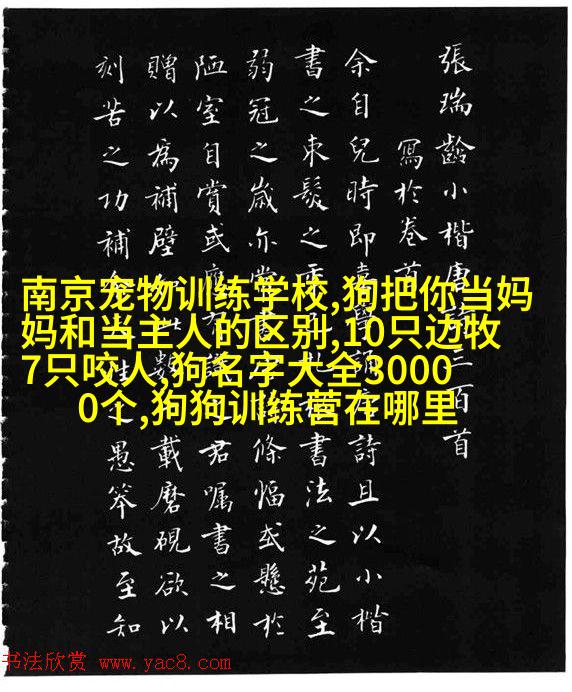 張瑞齡小楷唐三百首
寫於卷首
余自兒時即詩且以小楷
書之束髮之書法之苑至
弱冠之歲亦條幅或懸於
陋室自賞或君囑書之相
贈以為補壁載磨硯欲以
刻苦之功補之愚笨故至知
南京宠物训练学校,狗把你当妈
妈和当主人的区别,10只边牧
7只咬人,狗名字大全3000
0个,狗狗训练营在哪里
书法欣赏 www.yac8.com